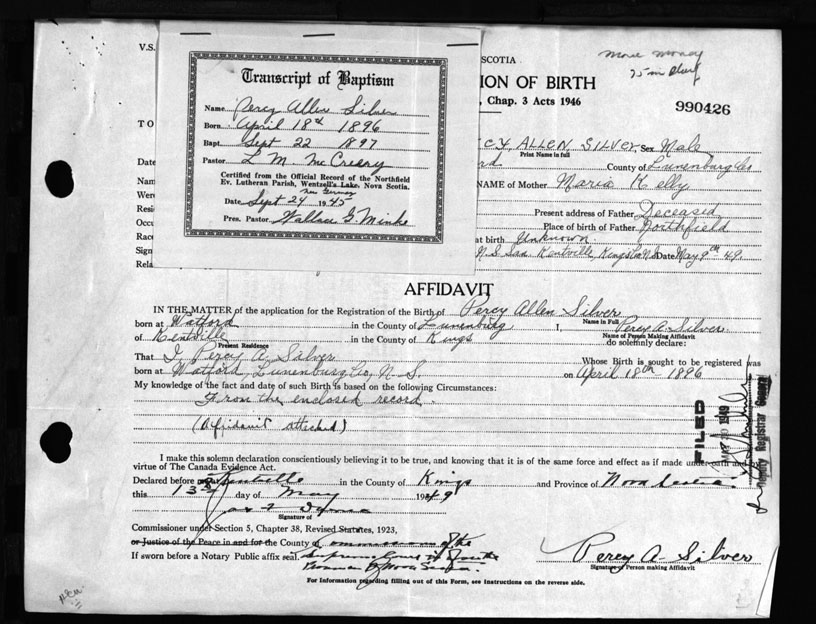 V.S.
SCOTIA
ION OF BIRTH
, Chap. 3 Acts 1946
990426
Transcript of Baptism
Name Percy Allen Silver
Born April 18th 1896
Bapt. Sept 22 1897
Pastor L. M. McCreery
Certified from the Official Record of the Northfield
Ev. Lutheran Parish, Wentzell's Lake, Nova Scotia.
New Germany
Date Sept 24 1945
Pres. Pastor Wallace G. Minke
TO
CY ALLEN SILVER, Sex Male
Print Name in full
Date
rd County of Lunenburg Co
Nam
NAME of Mother Maria Kelly
Were
Resi
Present address of Father Deceased
Occu
Place of birth of Father Northfield
Race
at birth Unknown
Sign
N.S. San Kentville, Kings Co N.S. Date May 9th 49.
Rela
AFFIDAVIT
IN THE MATTER of the application for the Registration of the Birth of Percy Allen Silver
Name in Full
born at Watford in the County of Lunenburg I, Percy A. Silver.
Name of Person Making Affidavit
of Kentville in the County of Kings do solemnly declare:
Present Residence
That I, Percy A. Silver Whose Birth is sought to be registered was
born at Watford, Lunenburg Co, N.S. on April 18th 1896
My knowledge of the fact and date of such Birth is based on the following Circumstances:
From the enclosed record.
(Afidavit attached)
FILED
1949
Deputy Registrar General
I make this solemn declaration conscientiously believing it to be true, and knowing that it is of the same force and effect as if made under oath and by
virtue of The Canada Evidence Act.
Declared before me Kentville in the County of Kings and Province of Nova Scotia.
this 13 day of May 1949
Signature of
Commissioner under Section 5, Chapter 38, Revised Statutes, 1923,
or Justice of the Peace in and for the County of
If sworn before a Notary Public affix seal. Supreme Court of
Province of Nova Scotia.
Percy A. Silver
Signature of Person making Affidavit
For Information regarding filling out of this Form, see Instructions on the reverse side.